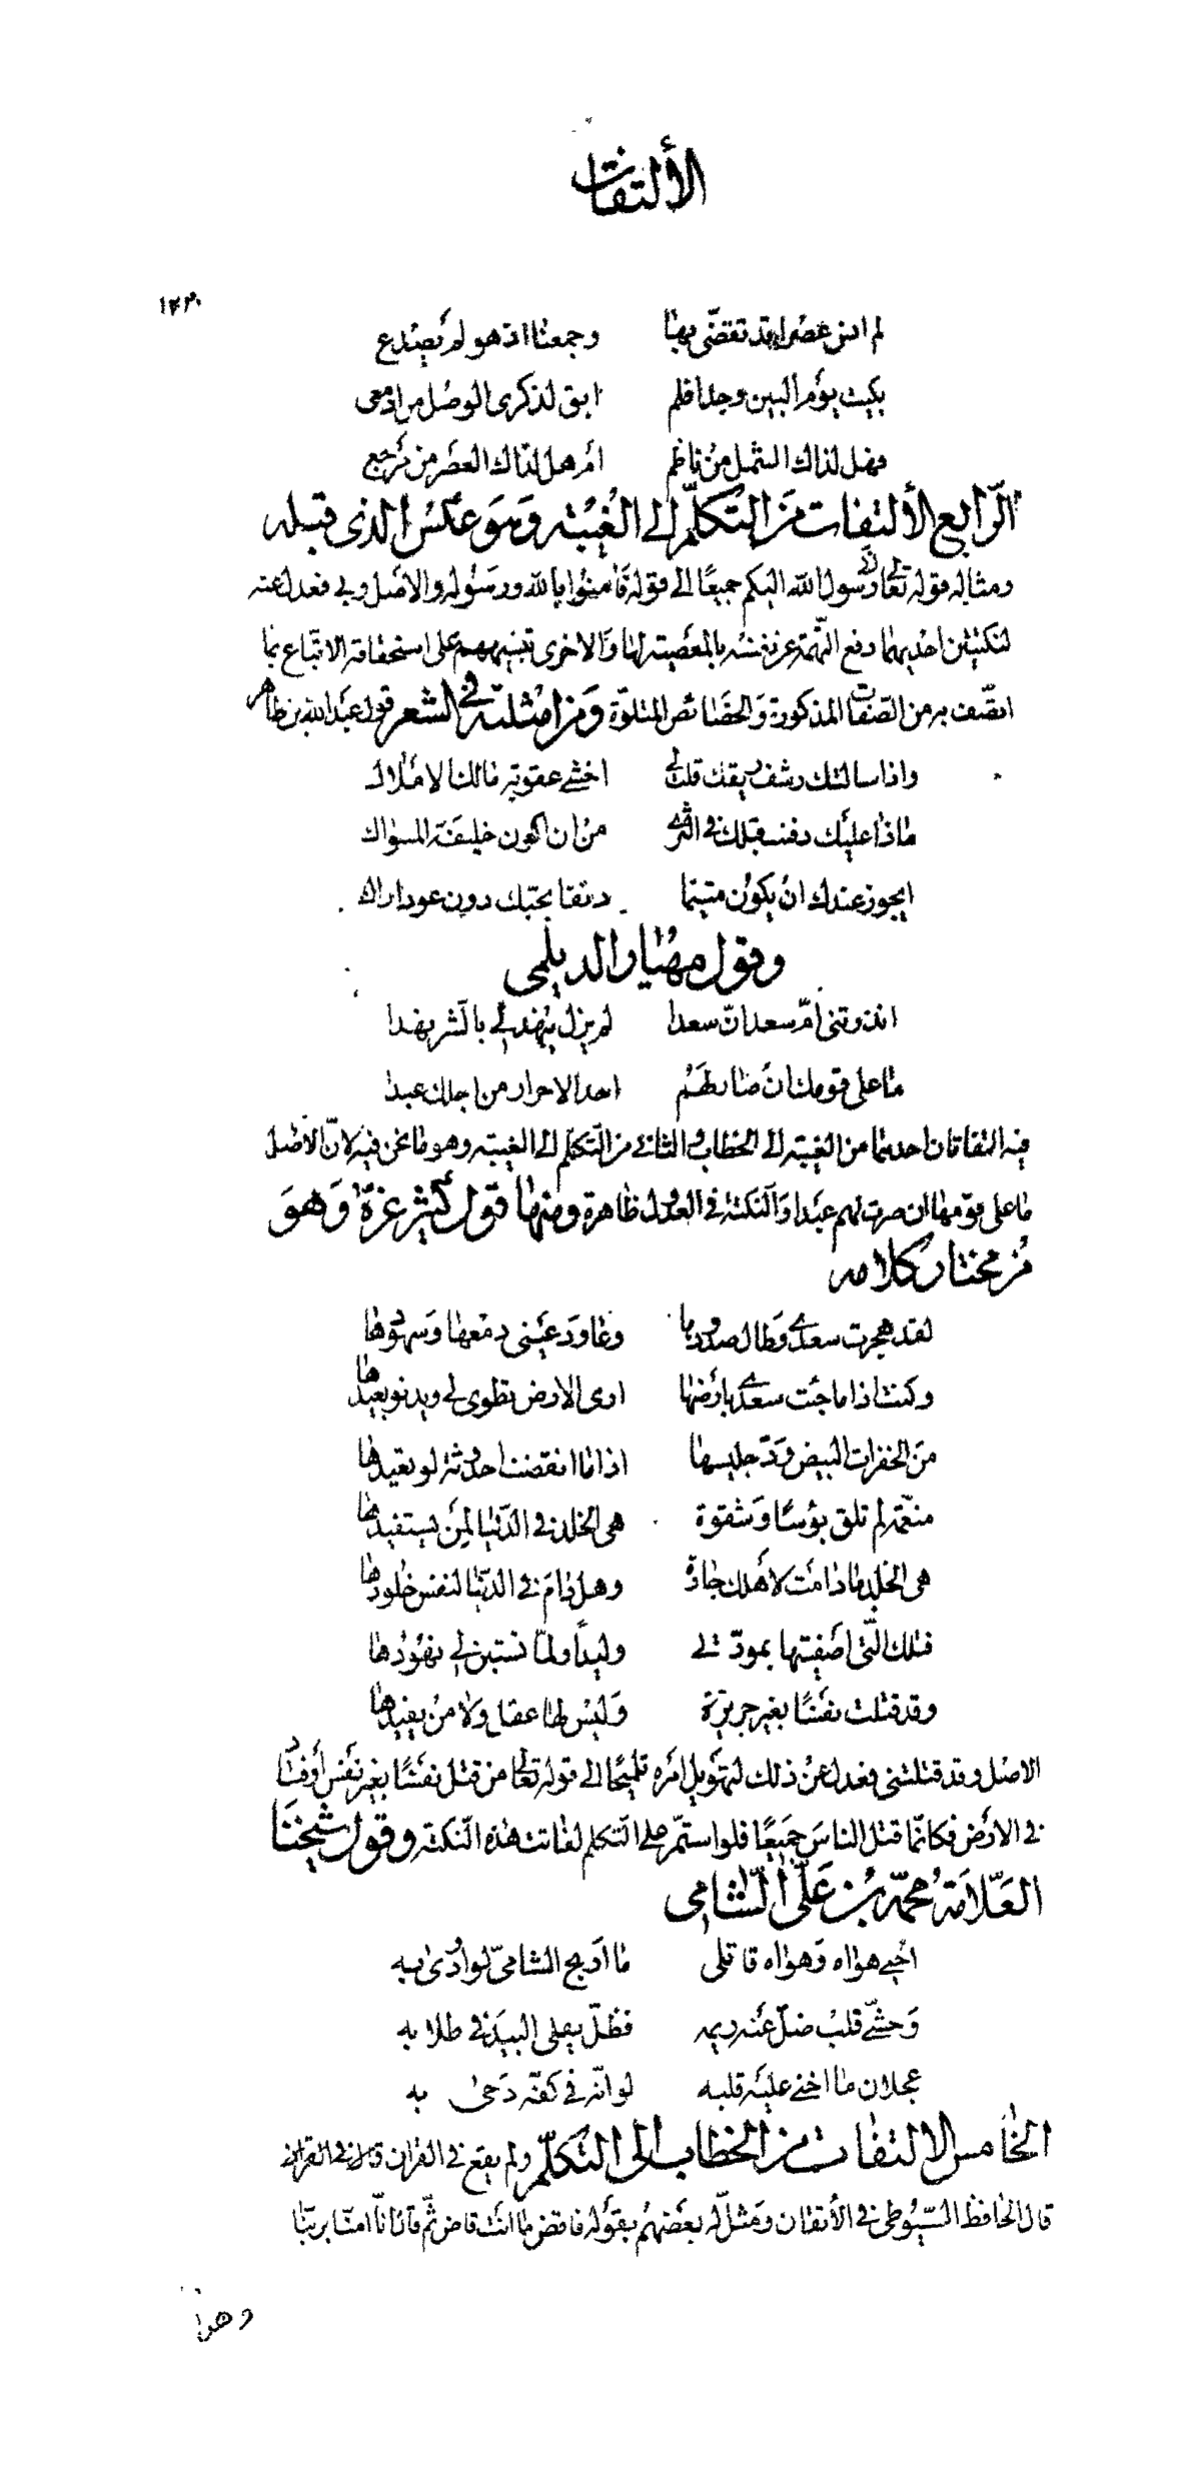 الألتفات
١٢٣
لم انس عصرا قد تقضّى بها وجمعنا اذ هو لم يصدع
بكيت يوم البين وجدا فلم ابق لذكرى الوصل من ادمعى
فهل لذاك الشمل من ناظم ام هل لذاك العصر من مرجع
الرّابع الألتفات من التكلّم الى الغيبة وهو عكس الذى قبله
ومثاله قوله تعالى انّى رسول الله اليكم جميعًا الى قوله فامنوا بالله ورسوله والاصل وبى فعدل عنه
لنكتتين احديهما دفع التّهمة عن نفسه بالعصبية لها والاخرى تنبيههم على استحقاقه الاتّباع بما
اتصّف به من الصّفات المذكورة والخصائص المتلوّة ومن امثلته فى الشعر قول عبد الله بن طاهر
واذا سالتك رشف ريقك قلت لى اخشى عقوبة مالك الاملاك
ماذا عليك دفنت قبلك فى الثرى من ان اكون خليفة المسواك
ايجوز عندك ان يكون متيّما دنفا بحبّك دون عود اراك
وقول مهيار الديلمى
انذرتنى امّ سعد انّ سعدا لم يزل ينهد لى بالشر نهدا
ما على قومك ان صار لهم احد الاحرار من اجلك عبدا
فيه التفاتان احدهما من الغيبة الى الخطاب والثانى من التّكلّم الى الغيبة وهو ما نحن فيه لانّ الاصل
ما على قومها ان صرت لهم عبدا والنكتة فى العدول ظاهرة ومنها قول كثيّر عزة وهو
من مختار كلامه
لقد هجرت سعدى وطال صدودها وعاود عينى دمعها وسهودها
وكنت اذا ما جئت سعدى بارضها ارى الارض تطوى لى ويدنو بعيدها
من الخفرات البيض ودّ جليسها اذا ما انقضت احدوثة لو تعيدها
منعّمة لم تلق بؤسًا وشقوة هى الخلد فى الدّنيا لمن يستفيدها
هى الخلد ما دامت لاهلك جارة وهل دام فى الدّنيا لنفس خلودها
فتلك الّتى اصفيتها بمودّتى وليدًا ولمّا تستبن لى نهودها
وقد قتلت نفسًا بغير جريرة وليس لها عقل ولا من يقيدها
الاصل وقد قتلتنى فعدل عن ذلك لتهويل امره تلميحًا الى قوله تعالى من قتل نفسًا بغير نفس أو فساد
فى الارض فكانّما قتل الناس جميعًا فلو استمرّ على التّكلم لفاتت هذه النّكتة وقول شيخنا
العلّامة محمّد بن علىّ الشّامى
احبى هواه وهواه قاتلى ما اربح الشامىّ لو اودى به
وحشّى قلب ضلّ عنه ريمه فظلّ يفلى البيد فى طلابه
عجلان ما اخنى عليه قلبه لو انّه فى كفّه رحى به
الخامس الالتفات من الخطاب الى التكلّم ولم يقع فى القران
قال الحافظ السّيوطى فى الأتقان ومثّل له بعضهم بقوله فاقض ما انت قاض ثمّ قال انّا امنّا بربّنا
وهذا